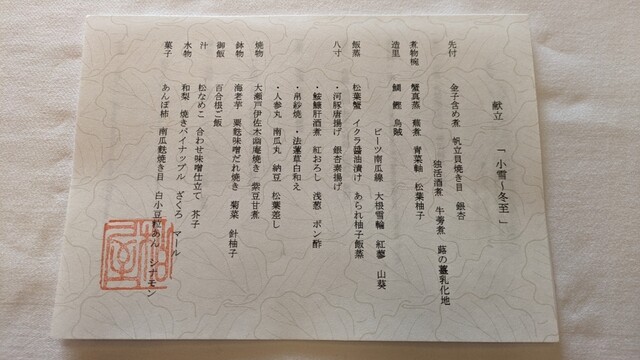 献立　「小雪～冬至」
先付　金子含め煮　帆立貝焼き目　銀杏
独活酒煮　牛蒡煮　蕗の薹乳化地
煮物椀　蟹真蒸　蕪煮　青菜軸　松葉柚子
造里　鯛　鰹　烏賊
ビーツ南瓜線　大根雪輪　紅蓼　山葵
飯蒸　松葉蟹　イクラ醤油漬け　あられ柚子飯蒸
八寸　・河豚唐揚げ　銀杏素揚げ
・鮟鱇肝酒煮　紅おろし　浅葱　ポン酢
・帛紗焼　・法蓮草白和え
・人参丸　南瓜丸　納豆　松葉差し
焼物　大瀬戸伊佐木幽庵焼き　紫豆甘煮
鉢物　海老芋　粟麩味噌だれ焼き　菊菜　針柚子
御飯　百合根ご飯
汁　松なめこ　合わせ味噌仕立て　芥子
水物　和梨　焼きパイナップル　ざくろ　マール
菓子　あんぽ柿　南瓜麩焼き目　白小豆粒あん　シナモン